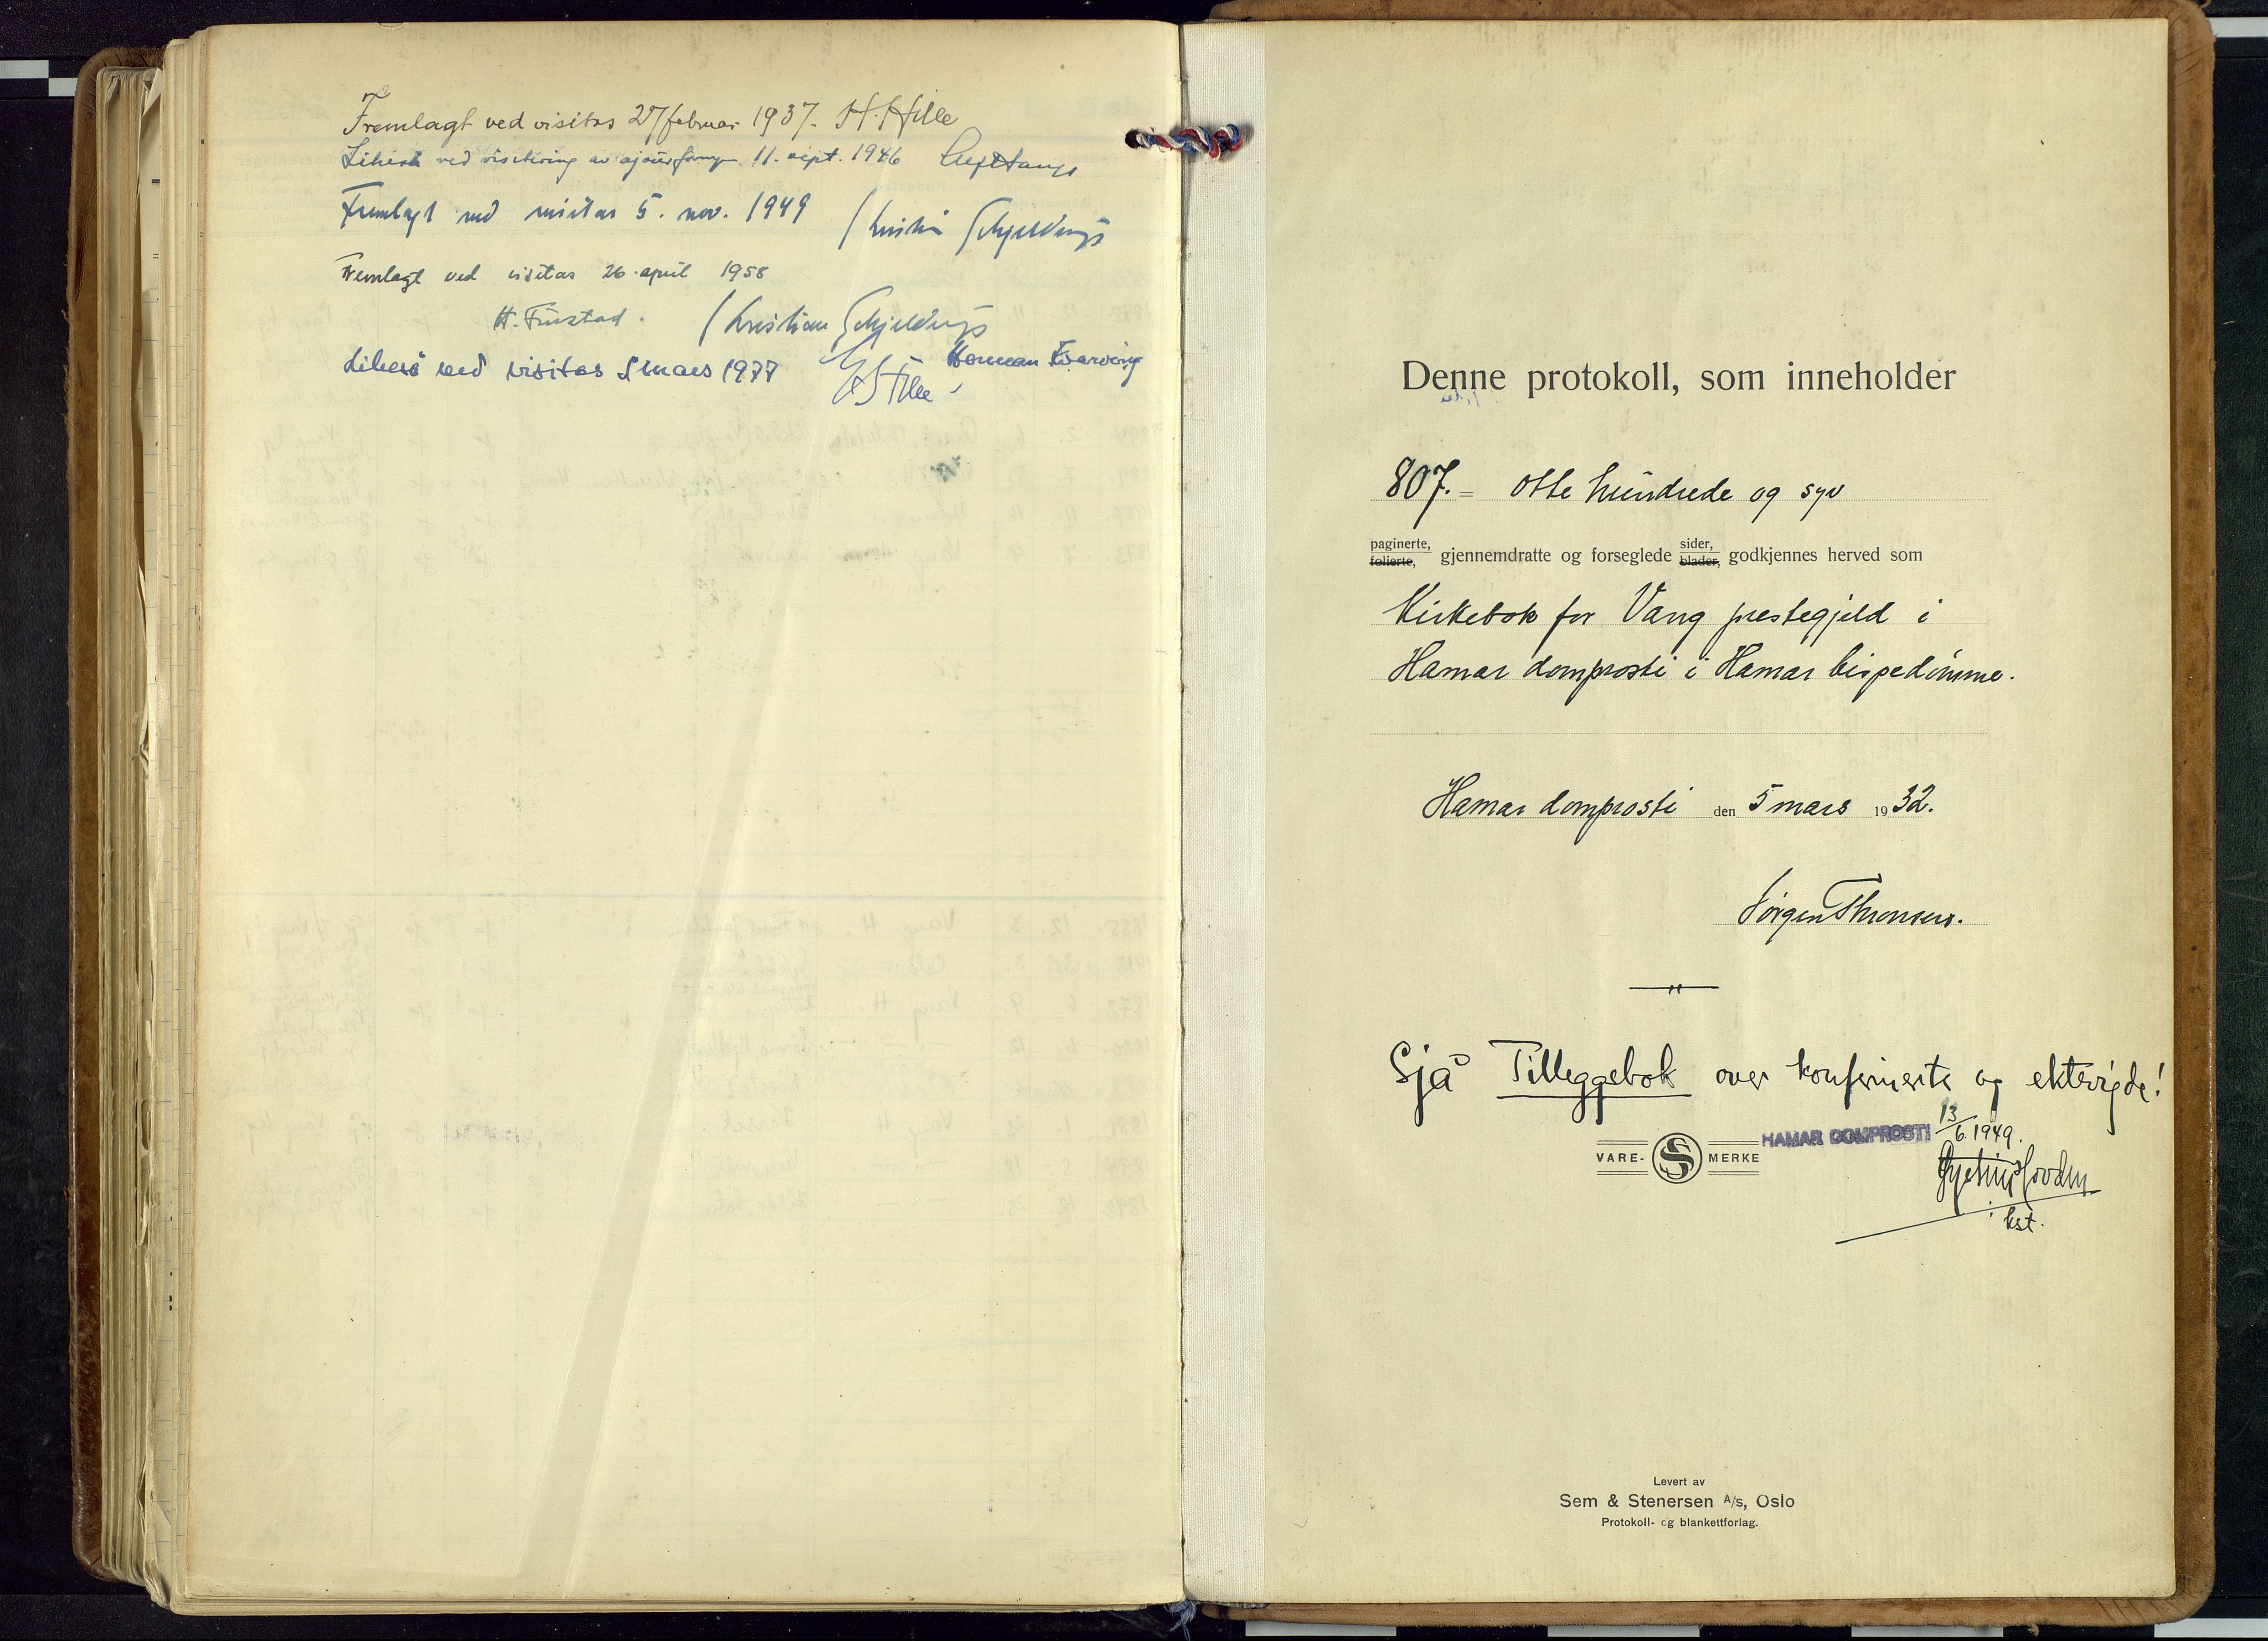 Fremlagt ved visitas 27 februar 1937. H. Hille
Likeså ved visitering av ajourføringen 11. sept. 1946
Fremlagt ved visitas 5. nov. 1949 Kristian Schjelderup
Fremlagt ved visitas 26. april 1958
H. Finstad. Kristian Schjelderup
Likeså ved visitas 5 mars 1977 G Hille Herman
Denne protokoll, som inneholder
807. = otte hundrede og syv
paginerte, folierte, gjennemdratte og forseglede sider, blader, godkjennes herved som
Kirkebok for Vang prestegjeld i
Hamar domprosti i Hamar bispedømme.
Hamar domprosti den 5 mars 1932.
Jørgen Thronsen.
Sjå Tilleggsbok over konfirmerte og ektevigde!
HAMAR DOMPROSTI 13/6.1949.
kst.
VARE- S MERKE
Levert av
Sem & Stenersen A/s, Oslo
Protokoll- og blankettforlag.